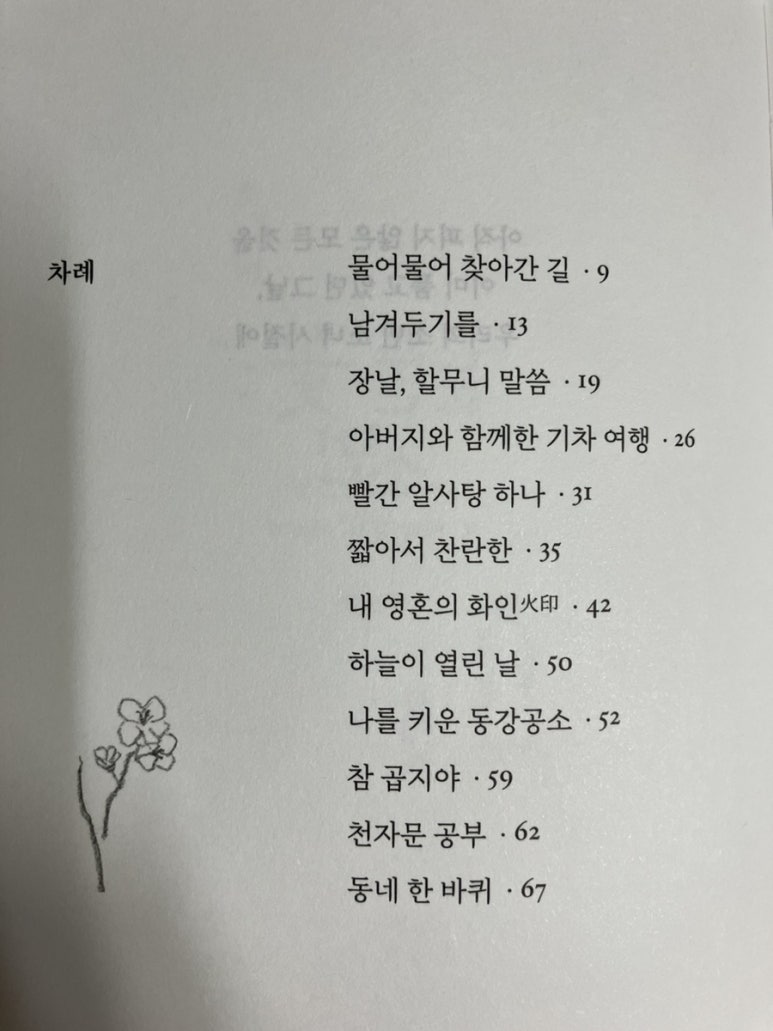 차례
물어물어 찾아간 길 · 9
남겨두기를 · 13
장날, 할무니 말씀 · 19
아버지와 함께한 기차 여행 · 26
빨간 알사탕 하나 · 31
짧아서 찬란한 · 35
내 영혼의 화인火印 · 42
하늘이 열린 날 · 50
나를 키운 동강공소 · 52
참 곱지야 · 59
천자문 공부 · 62
동네 한 바퀴 · 67